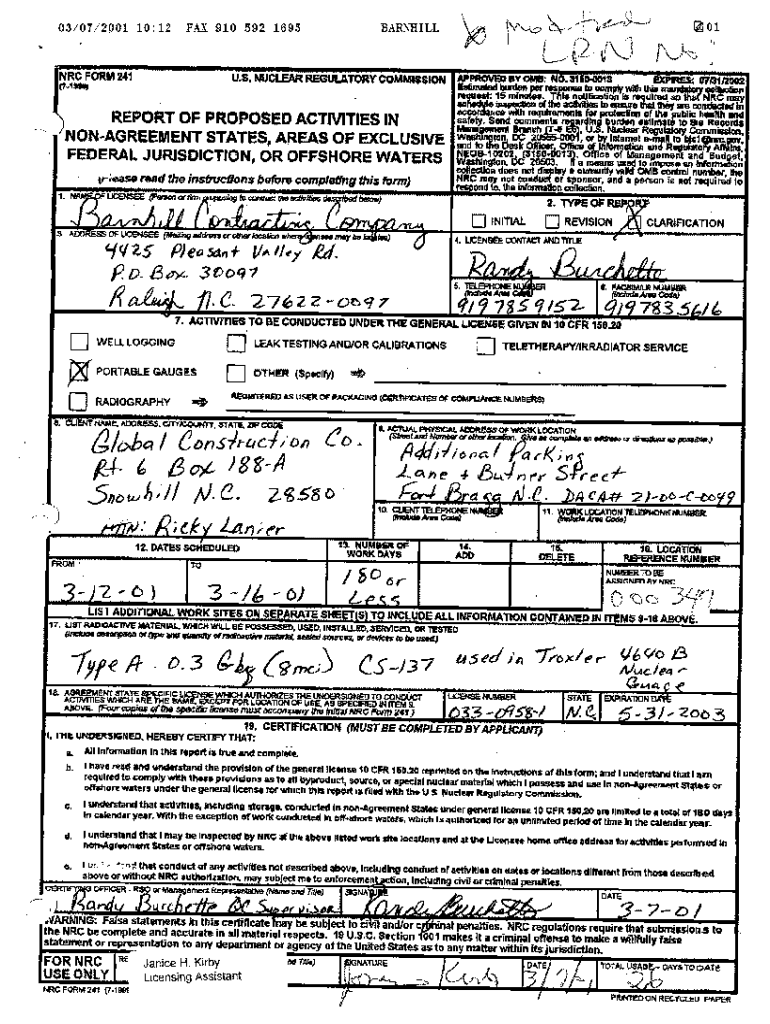 03/07/2001 10:12 FAX 910 592 1695 BARNHILL 01
Modified
LRN No:
NRC FORM 241
(7-1999)
U.S. NUCLEAR REGULATORY COMMISSION
REPORT OF PROPOSED ACTIVITIES IN
NON-AGREEMENT STATES, AREAS OF EXCLUSIVE
FEDERAL JURISDICTION, OR OFFSHORE WATERS
(Please read the instructions before completing this form)
APPROVED BY OMB: NO. 3150-0013 EXPIRES: 07/31/2002
Estimated burden per response to comply with this mandatory collection
request: 15 minutes. This notification is required so that NRC may
schedule inspection of the activities to ensure that they are conducted in
accordance with requirements for protection of the public health and
safety. Send comments regarding burden estimate to the Records
Management Branch (T-6 E6), U.S. Nuclear Regulatory Commission,
Washington, DC 20555-0001, or by Internet e-mail to bjs1@nrc.gov,
and to the Desk Officer, Office of Information and Regulatory Affairs,
NEOB-10202, (3150-0013), Office of Management and Budget,
Washington, DC 20503. If a means used to impose an information
collection does not display a currently valid OMB control number, the
NRC may not conduct or sponsor, and a person is not required to
respond to, the information collection.
1. NAME OF LICENSEE (Person or firm proposing to conduct the activities described below)
Barnhill Contracting Company
2. TYPE OF REPORT
INITIAL REVISION CLARIFICATION
3. ADDRESS OF LICENSEE (Mailing address or other location where licensee may be located)
4425 Pleasant Valley Rd.
P.O. Box 30097
Raleigh N.C. 27622-0097
4. LICENSEE CONTACT AND TITLE
Randy Burchette
5. TELEPHONE NUMBER
(Include Area Code)
9197859152
6. FACSIMILE NUMBER
(Include Area Code)
9197835616
7. ACTIVITIES TO BE CONDUCTED UNDER THE GENERAL LICENSE GIVEN IN 10 CFR 150.20
WELL LOGGING LEAK TESTING AND/OR CALIBRATIONS TELETHERAPY/IRRADIATOR SERVICE
PORTABLE GAUGES OTHER (Specify)
RADIOGRAPHY REGISTERED AS USER OF PACKAGING (CERTIFICATES OF COMPLIANCE NUMBERS)
8. CLIENT NAME, ADDRESS, CITY/COUNTY, STATE, ZIP CODE
Global Construction Co.
Rt. 6 Box 188-A
Snowhill N.C. 28580
ATTN: Ricky Lanier
9. ACTUAL PHYSICAL ADDRESS OF WORK LOCATION
(Street and Number or other location. Give as complete an address or directions as possible.)
Additional Parking
Lane + Butner Street
Fort Bragg N.C. DACA# 21-00-C-0049
10. CLIENT TELEPHONE NUMBER
(Include Area Code)
11. WORK LOCATION TELEPHONE NUMBER
(Include Area Code)
12. DATES SCHEDULED
FROM TO
3-12-01 3-16-01
13. NUMBER OF
WORK DAYS
180 or
Less
14.
ADD
15.
DELETE
16. LOCATION
REFERENCE NUMBER
NUMBER TO BE
ASSIGNED BY NRC
000347
LIST ADDITIONAL WORK SITES ON SEPARATE SHEET(S) TO INCLUDE ALL INFORMATION CONTAINED IN ITEMS 8-16 ABOVE.
17. LIST RADIOACTIVE MATERIAL, WHICH WILL BE POSSESSED, USED, INSTALLED, SERVICED, OR TESTED
(Include description of type and quantity of radioactive material, sealed sources, or devices to be used.)
Type A. 0.3 Gbq (8mci) CS-137 used in Troxler 4640 B
Nuclear
Guage
18. AGREEMENT STATE SPECIFIC LICENSE WHICH AUTHORIZES THE UNDERSIGNED TO CONDUCT
ACTIVITIES WHICH ARE THE SAME, EXCEPT FOR LOCATION OF USE, AS SPECIFIED IN ITEM 9,
ABOVE. (Four copies of the specific license must accompany the initial NRC Form 241.)
LICENSE NUMBER
033-0958-1
STATE
N.C.
EXPIRATION DATE
5-31-2003
19. CERTIFICATION (MUST BE COMPLETED BY APPLICANT)
I, THE UNDERSIGNED, HEREBY CERTIFY THAT:
a. All information in this report is true and complete.
b. I have read and understand the provision of the general license 10 CFR 150.20 reprinted on the instructions of this form; and I understand that I am
required to comply with these provisions as to all byproduct, source, or special nuclear material which I possess and use in non-Agreement States or
offshore waters under the general license for which this report is filed with the U.S. Nuclear Regulatory Commission.
c. I understand that activities, including storage, conducted in non-Agreement States under general license 10 CFR 150.20 are limited to a total of 180 days
in calendar year. With the exception of work conducted in off-shore waters, which is authorized for an unlimited period of time in the calendar year.
d. I understand that I may be inspected by NRC at the above listed work site locations and at the Licensee home office address for activities performed in
non-Agreement States or offshore waters.
e. I understand that conduct of any activities not described above, including conduct of activities on dates or locations different from those described
above or without NRC authorization, may subject me to enforcement action, including civil or criminal penalties.
CERTIFYING OFFICER - RSO or Management Representative (Name and Title)
Randy Burchette QC Supervisor
SIGNATURE
Randy Burchette
DATE
3-7-01
WARNING: False statements in this certificate may be subject to civil and/or criminal penalties. NRC regulations require that submissions to
the NRC be complete and accurate in all material respects. 18 U.S.C. Section 1001 makes it a criminal offense to make a willfully false
statement or representation to any department or agency of the United States as to any matter within its jurisdiction.
FOR NRC
USE ONLY
Janice H. Kirby
Licensing Assistant
nd Title)
SIGNATURE
DATE
TOTAL USAGE - DAYS TO DATE
26
NRC FORM 241 (7-1999)
PRINTED ON RECYCLED PAPER